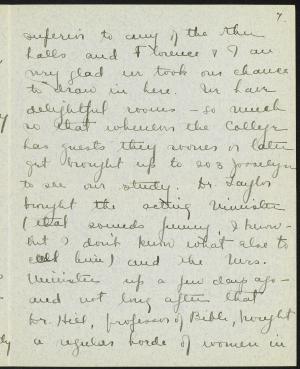 7.
superior to any of the other
halls and Florence & I are
very glad we took our chance
to draw in here. We have
delightful rooms - so much
so that whenever the College
has guests they sooner or later
get brought up to 203 Josselyn
to see our study. Dr. Taylor
brought the acting Minister
(that sounds funny, I know -
but I don't know what else to
call him) and the Mrs.
Minister up a few days ago -
and not long after that
Dr. Hill, professor of Bible, brought
a regular horde of women in